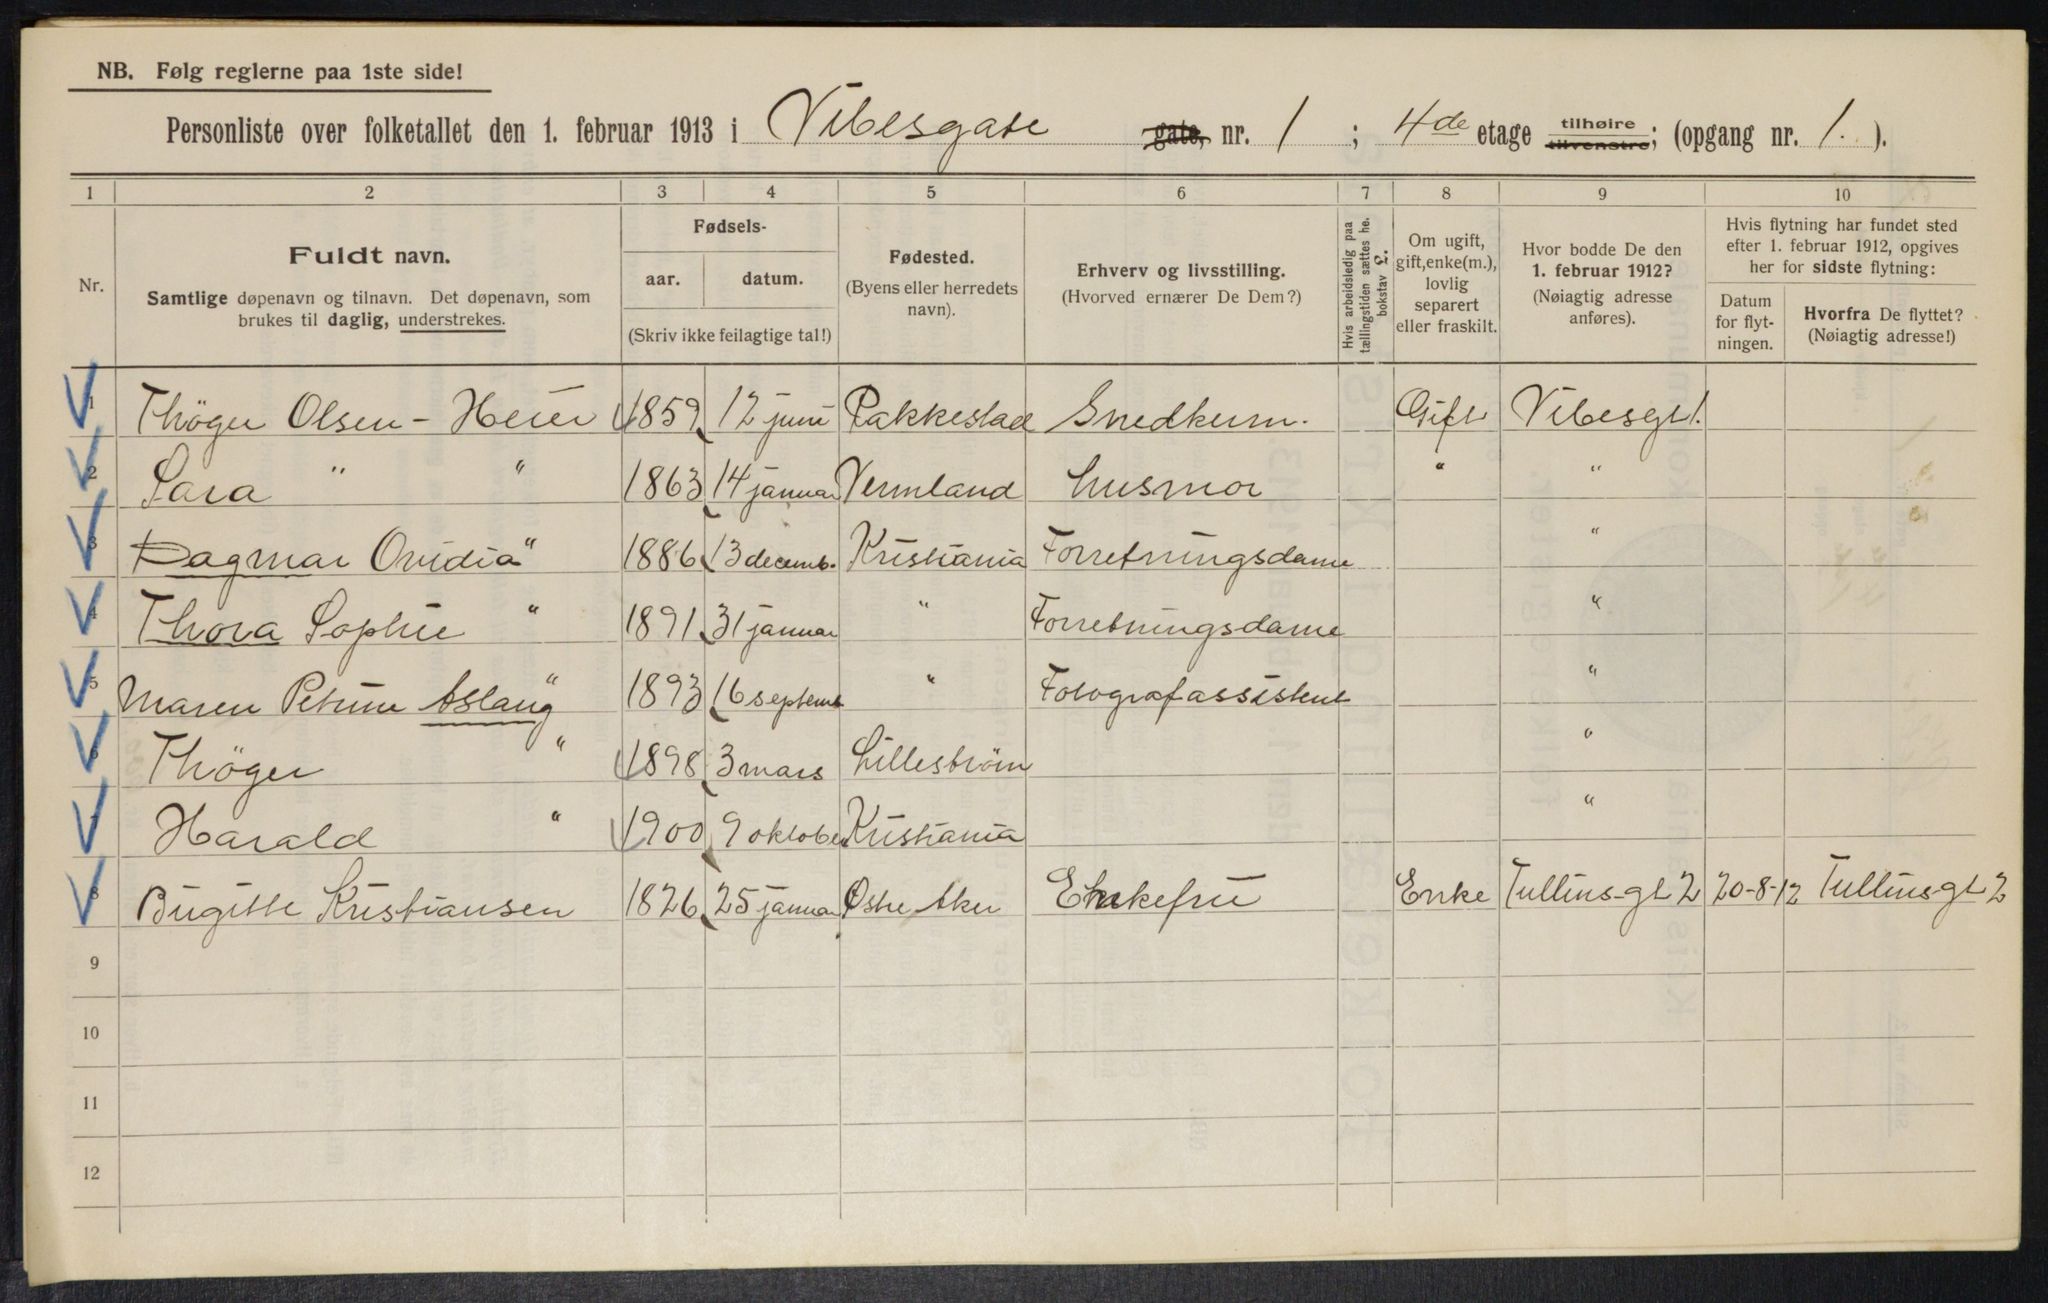 NB. Følg reglerne paa 1ste side!
Personliste over folketallet den 1. februar 1913 i Vibesgate gate, nr. 1 ; 4de etage tilhøire tilvenstre; (opgang nr. 1. ).
1 2 3 4 5 6 7 8 9 10
Nr.
Fuldt navn.
Samtlige døpenavn og tilnavn. Det døpenavn, som
brukes til daglig, understrekes.
Fødsels-
aar. datum.
(Skriv ikke feilagtige tal!)
Fødested.
(Byens eller herredets
navn).
Erhverv og livsstilling.
(Hvorved ernærer De Dem?)
Hvis arbeidsledig paa
tællingstiden sættes he.
bokstav L.
Om ugift,
gift, enke(m.),
lovlig
separert
eller fraskilt.
Hvor bodde De den
1. februar 1912?
(Nøiagtig adresse
anføres).
Hvis flytning har fundet sted
efter 1. februar 1912, opgives
her for sidste flytning:
Datum
for flyt-
ningen.
Hvorfra De flyttet?
(Nøiagtig adresse!)
1 Thöger Olsen - Heier 1859 12 juni Rakkestad Snedkerm. Gift Vibesgt 1.
2 Sara " " 1863 14 januar Vermland husmor " "
3 Dagmar Ovidia " 1886 13 decemb. Kristiania Forretningsdame "
4 Thora Sophie " 1891 31 januar " Forretningsdame "
5 Maren Petrine Aslaug " 1893 16 septemb " Fotografassistent "
6 Thöger " 1898 3 mars Lilleström "
7 Harald " 1900 9 oktober Kristiania "
8 Birgitte Kristiansen 1826 25 januar Østre Aker Enkefru Enke Tullins-gt 2 20-8-12 Tullinsgt 2
9
10
11
12